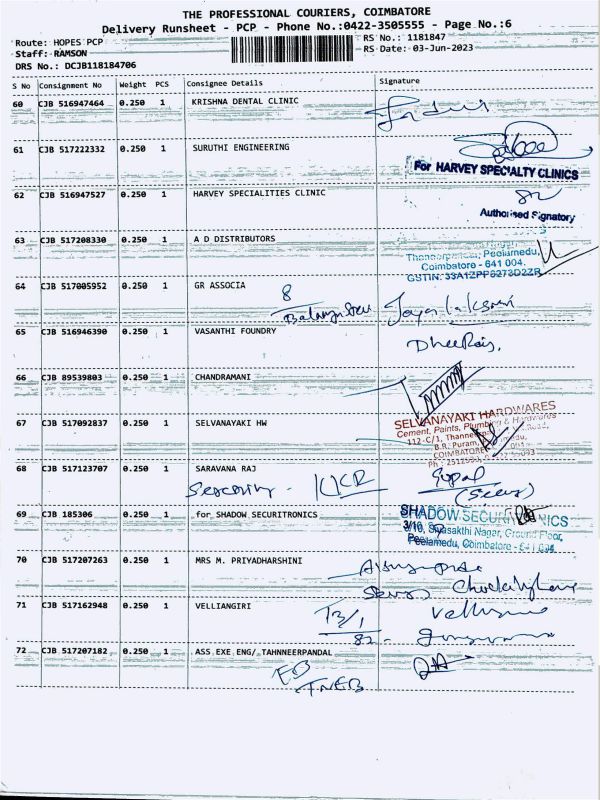 THE PROFESSIONAL COURIERS, COIMBATORE
Delivery Runsheet - PCP - Phone No.:0422-3505555 - Page No.:6
Route: HOPES PCP
RS No.: 1181847
Staff: RAMSON
RS Date: 03-Jun-2023
DRS No.: DCJB118184706
S No Consignment No Weight PCS Consignee Details Signature
60 CJB 516947464 0.250 1 KRISHNA DENTAL CLINIC
61 CJB 517222332 0.250 1 SURUTHI ENGINEERING
For HARVEY SPECIALTY CLINICS
62 CJB 516947527 0.250 1 HARVEY SPECIALITIES CLINIC
Authorised Signatory
63 CJB 517208330 0.250 1 A D DISTRIBUTORS
Peelamedu,
Coimbatore - 641 004.
GSTIN: 33A1ZPP8273D2ZR
64 CJB 517005952 0.250 1 GR ASSOCIA
8
65 CJB 516946390 0.250 1 VASANTHI FOUNDRY
DheeRaj.
66 CJB 89539803 0.250 1 CHANDRAMANI
67 CJB 517092837 0.250 1 SELVANAYAKI HW
SELVANAYAKI HARDWARES
Cement, Paints, Plumbing & Hardwares
112-C/1, Road,
B.R. Puram,
COIMBATORE
68 CJB 517123707 0.250 1 SARAVANA RAJ
69 CJB 185306 0.250 1 for SHADOW SECURITRONICS
SHADOW SECURITRONICS
3/10, Sivasakthi Nagar, Ground Floor,
Peelamedu, Coimbatore - 641 004.
70 CJB 517207263 0.250 1 MRS M. PRIYADHARSHINI
71 CJB 517162948 0.250 1 VELLIANGIRI
72 CJB 517207182 0.250 1 ASS EXE ENG/ TAHNNEERPANDAL
EB
TNEB